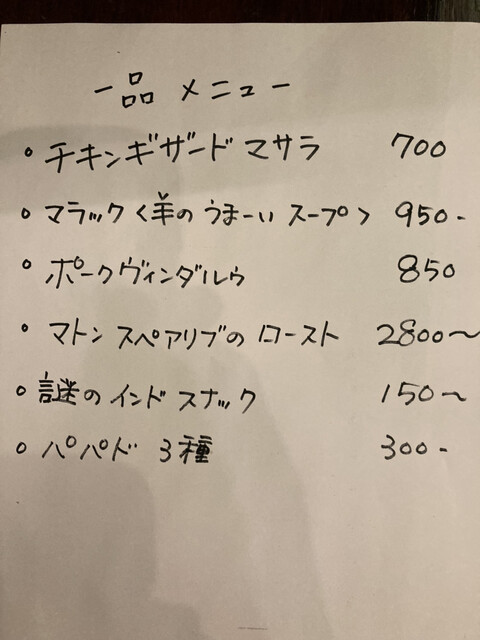 一品 メニュー
• チキンギザード マサラ 700
• マラック〈羊の うまーい スープ〉 950-
• ポークヴィンダルゥ 850
• マトン スペアリブの ロースト 2800〜
• 謎の インド スナック 150〜
• パパド 3種 300-